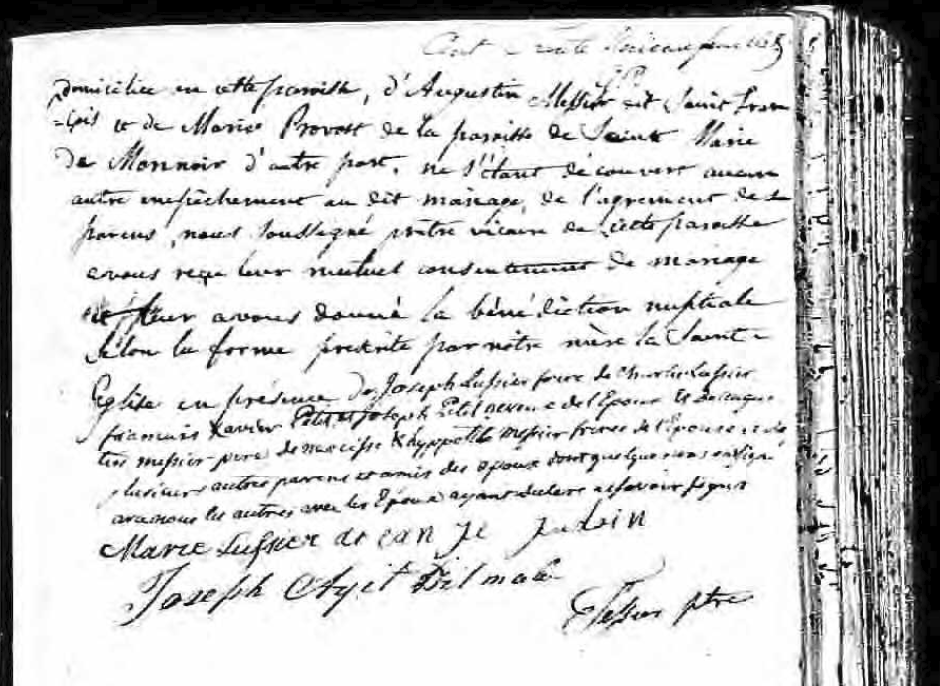 Cent Trente
domiciliée en cette paroisse, d'Augustin Messier dit Saint Fran
-çois et de Marie Provost de la paroisse de Sainte Marie
De Monnoir d'autre part, ne s'étant découvert aucun
autre empêchement au dit mariage, de l'agrement des
parens, nous soussigné prêtre vicaire de cette paroisse
avons reçu leur mutuel consentement de mariage
et leur avons donné la bénédiction nuptiale
selon la forme prescrite par notre mère la Sainte
Eglise en présence de Joseph Lussier frere de Charles Lussier
francois Xavier Petit et Joseph Petit neveux de l'Epoux et de augus
tin messier pere de narcisse & hyppolite messier freres de l'Epouse et de
plusieurs autres parens et amis des epoux dont quelques uns ont signé
avec nous les autres avec les Epoux ayant declaré ne savoir signer
Marie Lussier
Joseph
Tessier ptre